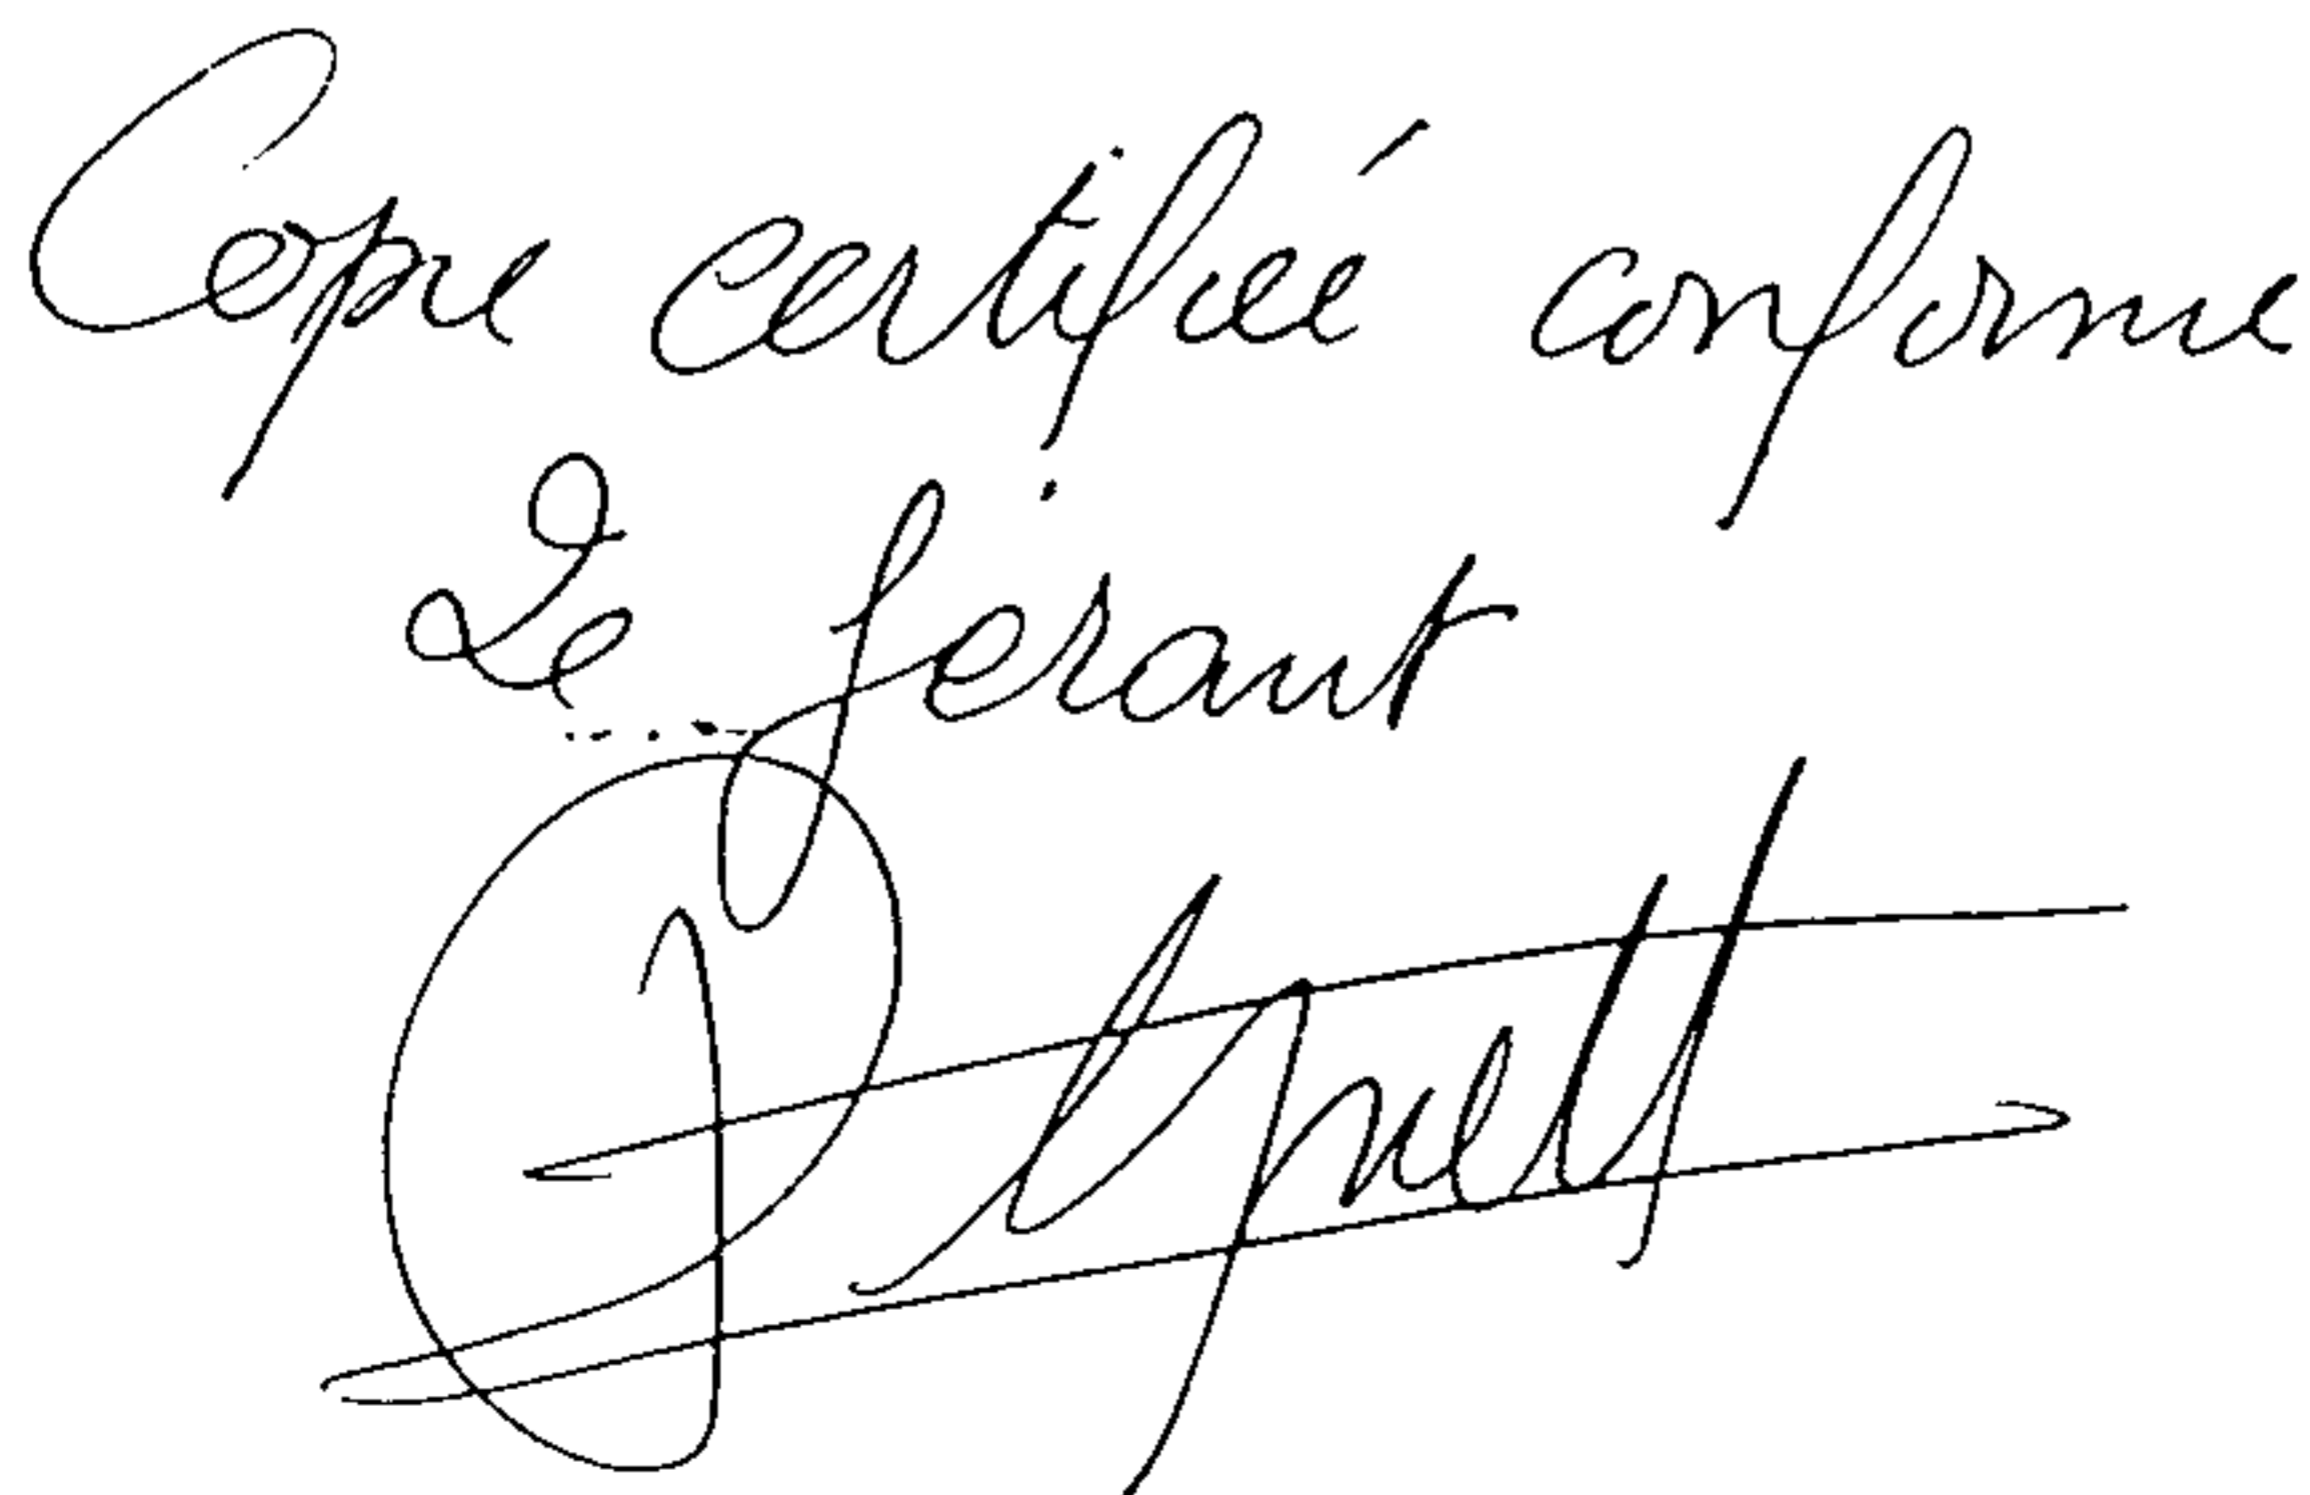 Copie certifiée conforme
Le gérant